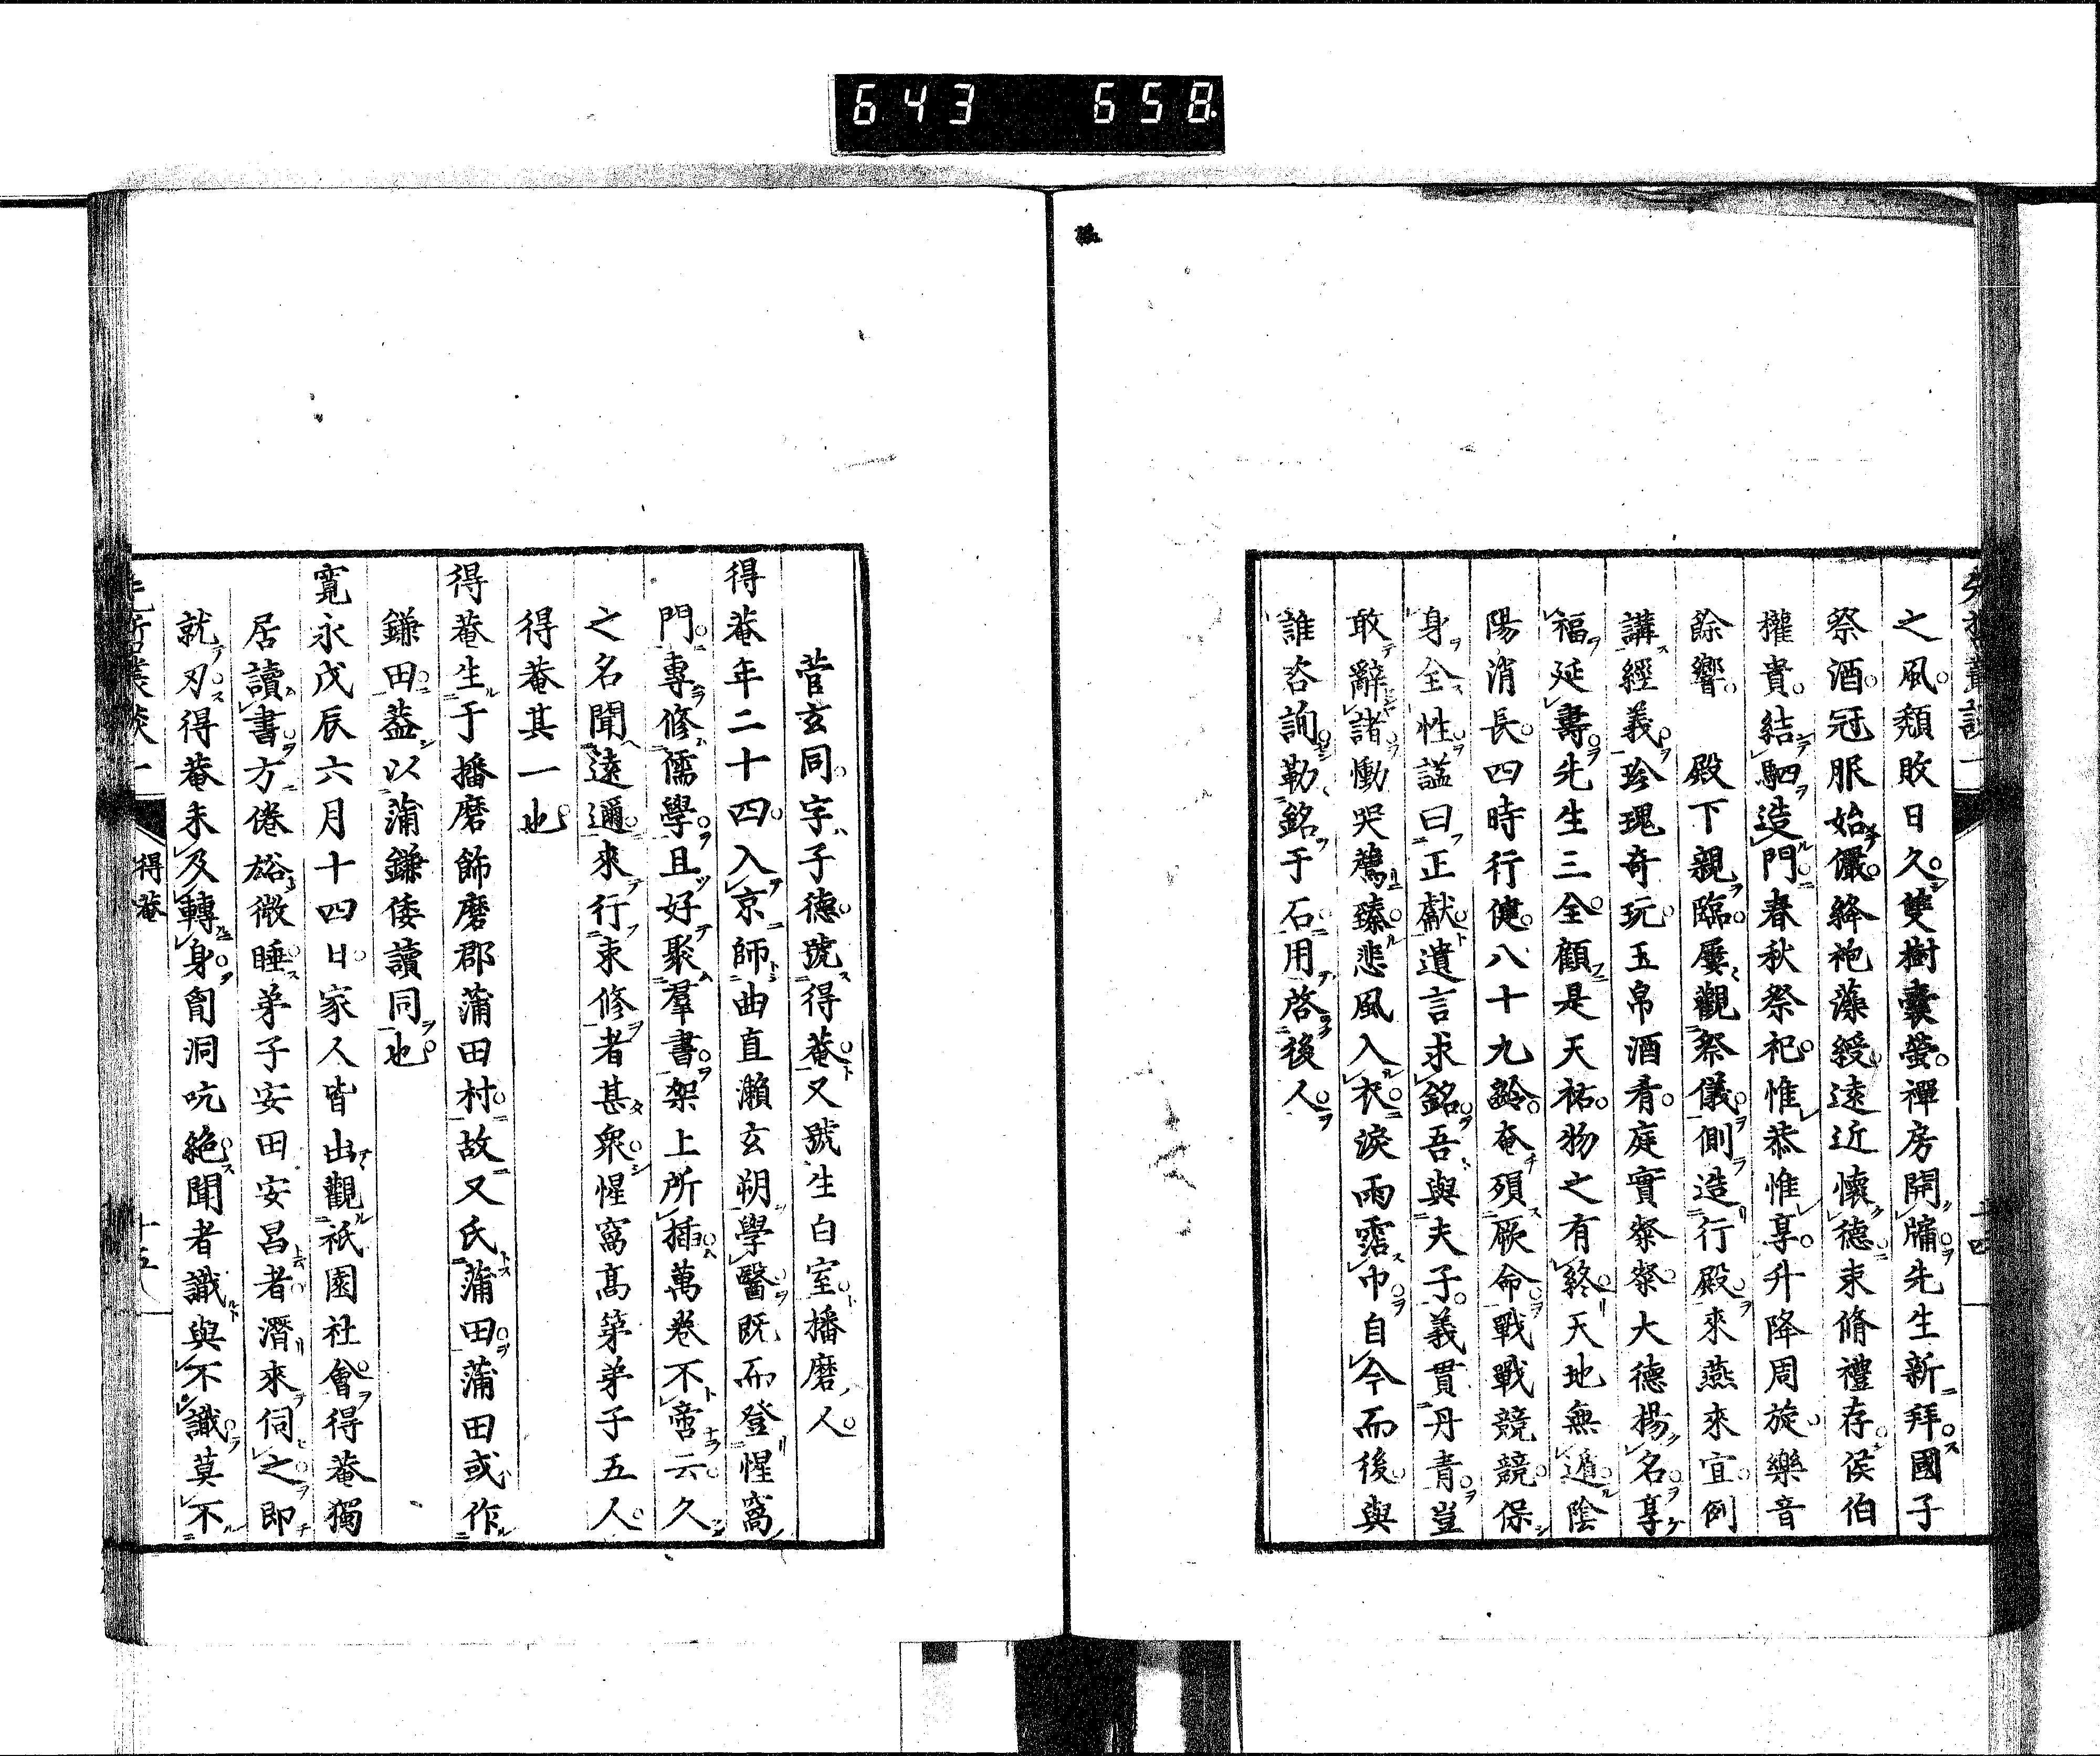 643 658
之風頽敗日久雙樹囊螢禪房開牗先生新拜國子
祭酒冠服始儼絳袍藻綬遠近懷德束脩禮存侯伯
權貴結駟造門春秋祭祀惟恭惟享升降周旋樂音
餘響　殿下親臨屢觀祭儀側造行殿來燕來宜例
講經義珍瑰奇玩玉帛酒肴庭實粲粲大德揚名享
福延壽先生三全顧是天祐物之有終天地無遁陰
陽消長四時行健八十九齡奄殞厥命戰戰競競保
身全性諡曰正獻遺言求銘吾與夫子義貫丹青豈
敢辭諸慟哭薦臻悲風入衣淚雨霑巾自今而後與
誰咨詢勒銘于石用啓後人
菅玄同字子德號得菴又號生白室播磨人
得菴年二十四入京師曲直瀨玄朔學醫既而登惺窩
門專修儒學且好聚羣書架上所插萬卷不啻云久
之名聞遠邇來行束修者甚衆惺窩高第弟子五人
得菴其一也
得菴生于播磨飾磨郡蒲田村故又氏蒲田蒲田或作
鎌田葢以蒲鎌倭讀同也
寬永戊辰六月十四日家人皆出觀祇園社會得菴獨
居讀書方倦欲微睡弟子安田安昌者潛來伺之即
就刃得菴未及轉身胷洞吭絶聞者識與不識莫不
得菴
十五